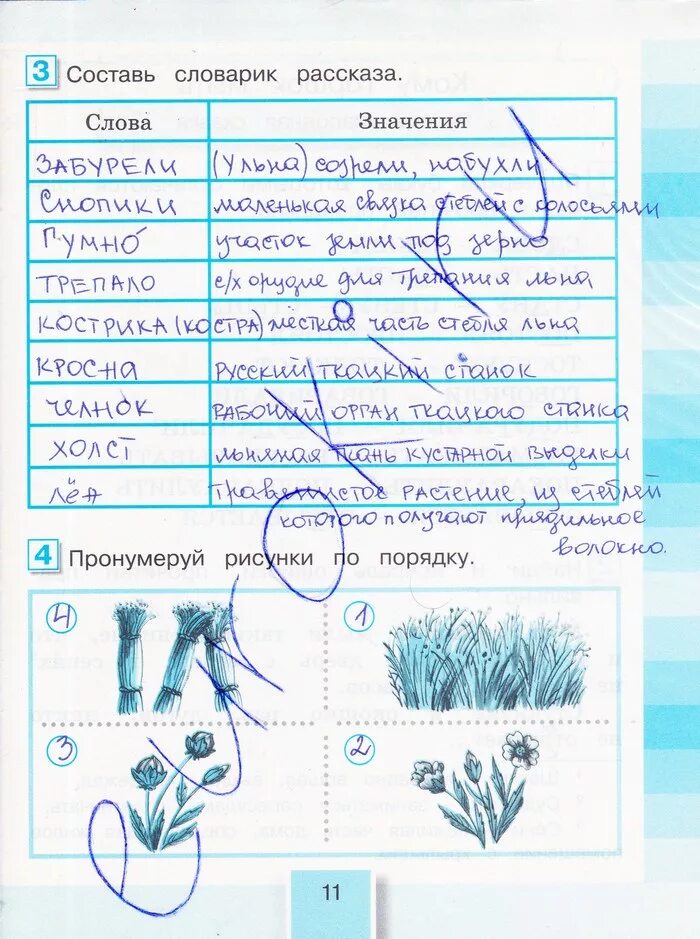 3 Составь словарик рассказа.
Слова Значения
ЗАБУРЕЛИ (У льна) созрели, набухли
Снопики маленькая связка стеблей с колосьями
Гумно́ участок земли под зерно
ТРЕПАЛО с/х орудие для трепания льна
КОСТРИКА (КОСТРА) жёсткая часть стебля льна
КРОСНА РУССКИЙ ТКАЦКИЙ СТАНОК
ЧЕЛНОК РАБОЧИЙ ОРГАН ТКАЦКОГО СТАНКА
ХОЛСТ льняная ткань КУСТАРНОЙ ВЫДЕЛКИ
ЛЁН ТРАВЯНИСТОЕ РАСТЕНИЕ, из стеблей
которого получают прядильное
волокно.
4 Пронумеруй рисунки по порядку.
4 1
3 2
11